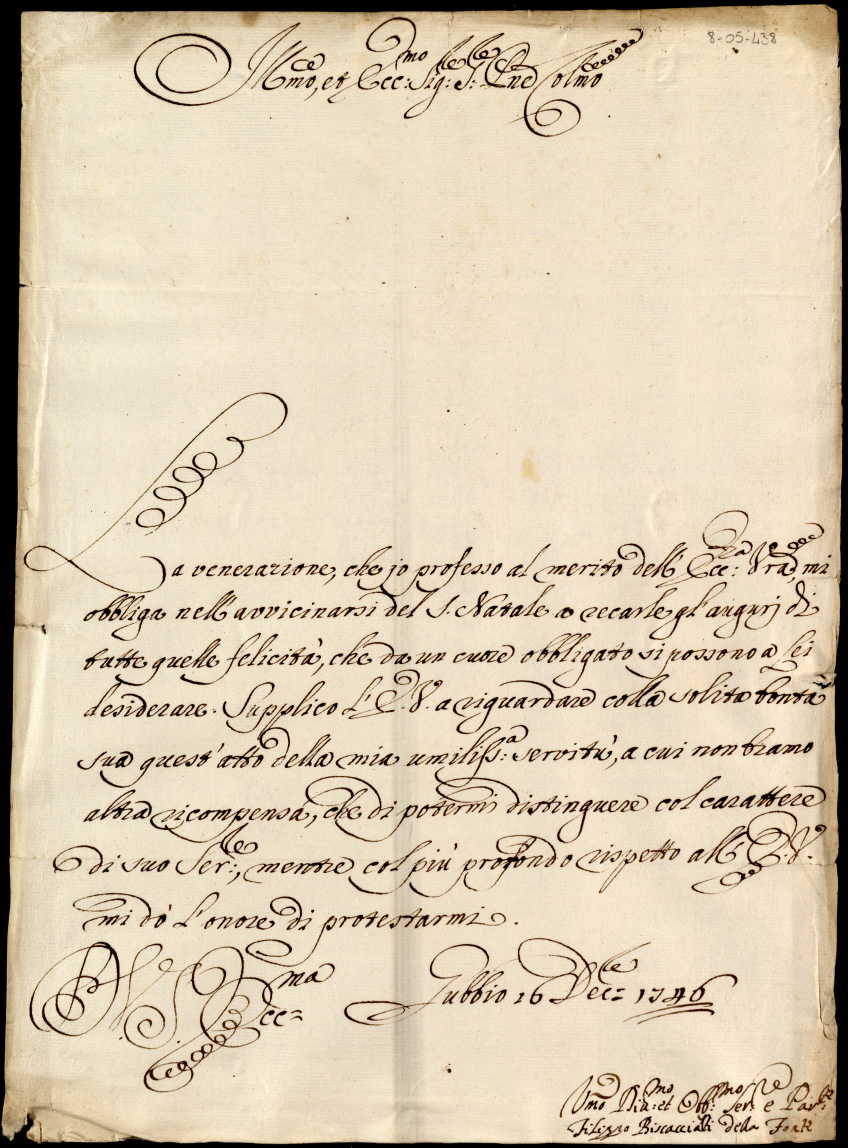 8-05-438
Illmo, et Ecc:mo Sig:re S:re Pne Colmo
La venerazione, che jo professo al merito dell' Ecc:za Vra, mi
obbliga nell' avvicinarsi del S. Natale a recarle gl'augurj di
tutte quelle felicità, che da un cuore obbligato si possono a Lei
desiderare. Supplico L'E. V. a riguardare colla solita bontà
sua quest'atto della mia umiliss:a servitù, a cui non bramo
altra ricompensa, che di potermi distinguere col carattere
di suo Ser:re, mentre col più profondo rispetto all' E. V.
mi dò l'onore di protestarmi.
D. V. S. Ecc:ma
Gubbio 16 Dec:bre 1746
Umo Div:mo et Obb:mo Ser:re e
Filippo Biscacciali della Fonte